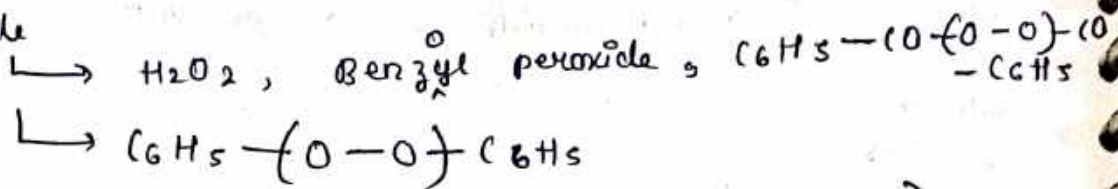 le
↳ H2O2, Benzoyl peroxide, C6H5-CO-(O-O)-CO
-C6H5
↳ C6H5-(O-O)-C6H5